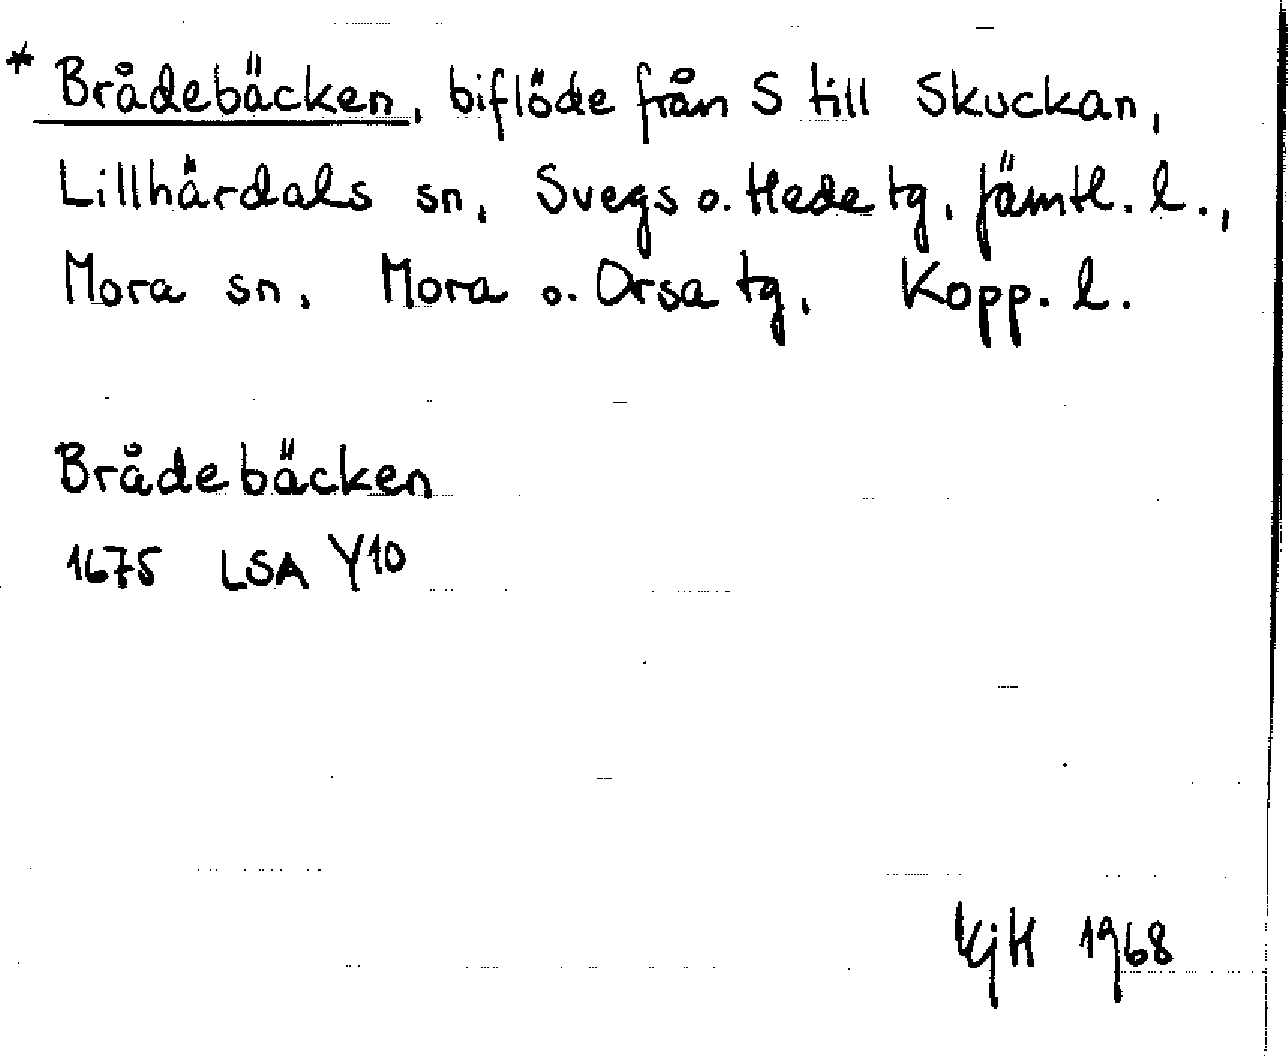 * Brådebäcken, biflöde från S till Skuckan,
Lillhärdals sn, Svegs o. Hede tg, Jämtl. l.,
Mora sn, Mora o. Orsa tg, Kopp. l.
Brådebäcken
1675 LSA Y10
KjH 1968